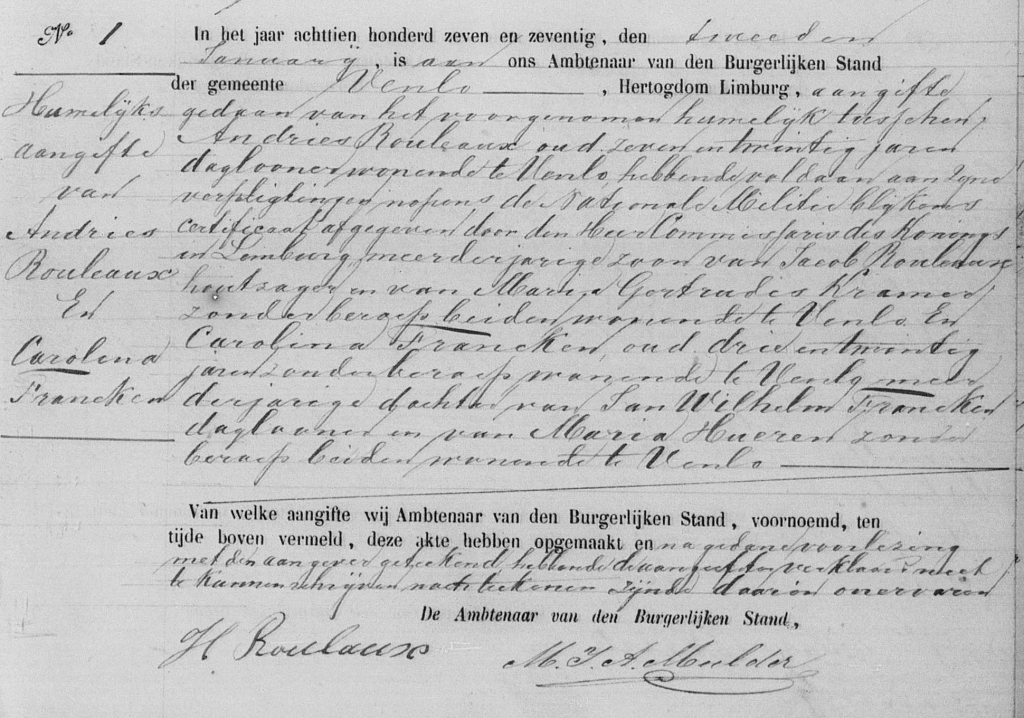 No. 1
Huwelijks
aangifte
van
Andries
Rouleaux
En
Carolina
Francken
In het jaar achttien honderd zeven en zeventig, den tweeden
Januarij, is aan ons Ambtenaar van den Burgerlijken Stand
der gemeente Venlo, Hertogdom Limburg, aangifte
gedaan van het voorgenomen huwelijk tusschen,
Andries Rouleaux oud zeven en twintig jaren
daglooner wonende te Venlo, hebbende voldaan aan zyne
verpligtingen nopens de Nationale Militie blykens
certificaat afgegeven door den Heer Commissaris des Konings
in Limburg, meerderjarige zoon van Jacob Rouleaux
houtzager en van Maria Gertrudis Kramer,
zonder beroep beiden wonende te Venlo. En
Carolina Francken, oud drie en twintig
jaren zonder beroep wonende te Venlo, meer
derjarige dochter van Jan Wilhelm Francken
daglooner en van Maria Hueren zonder
beroep beiden wonende te Venlo
Van welke aangifte wij Ambtenaar van den Burgerlijken Stand, voornoemd, ten
tijde boven vermeld, deze akte hebben opgemaakt en na gedane voorlezing
met den aangever geteekend, hebbende de aangeefster verklaard niet
te kunnen schrijven noch teekenen zijnde daarin onervaren
De Ambtenaar van den Burgerlijken Stand,
H Roulaux
M. J. A. Mulder